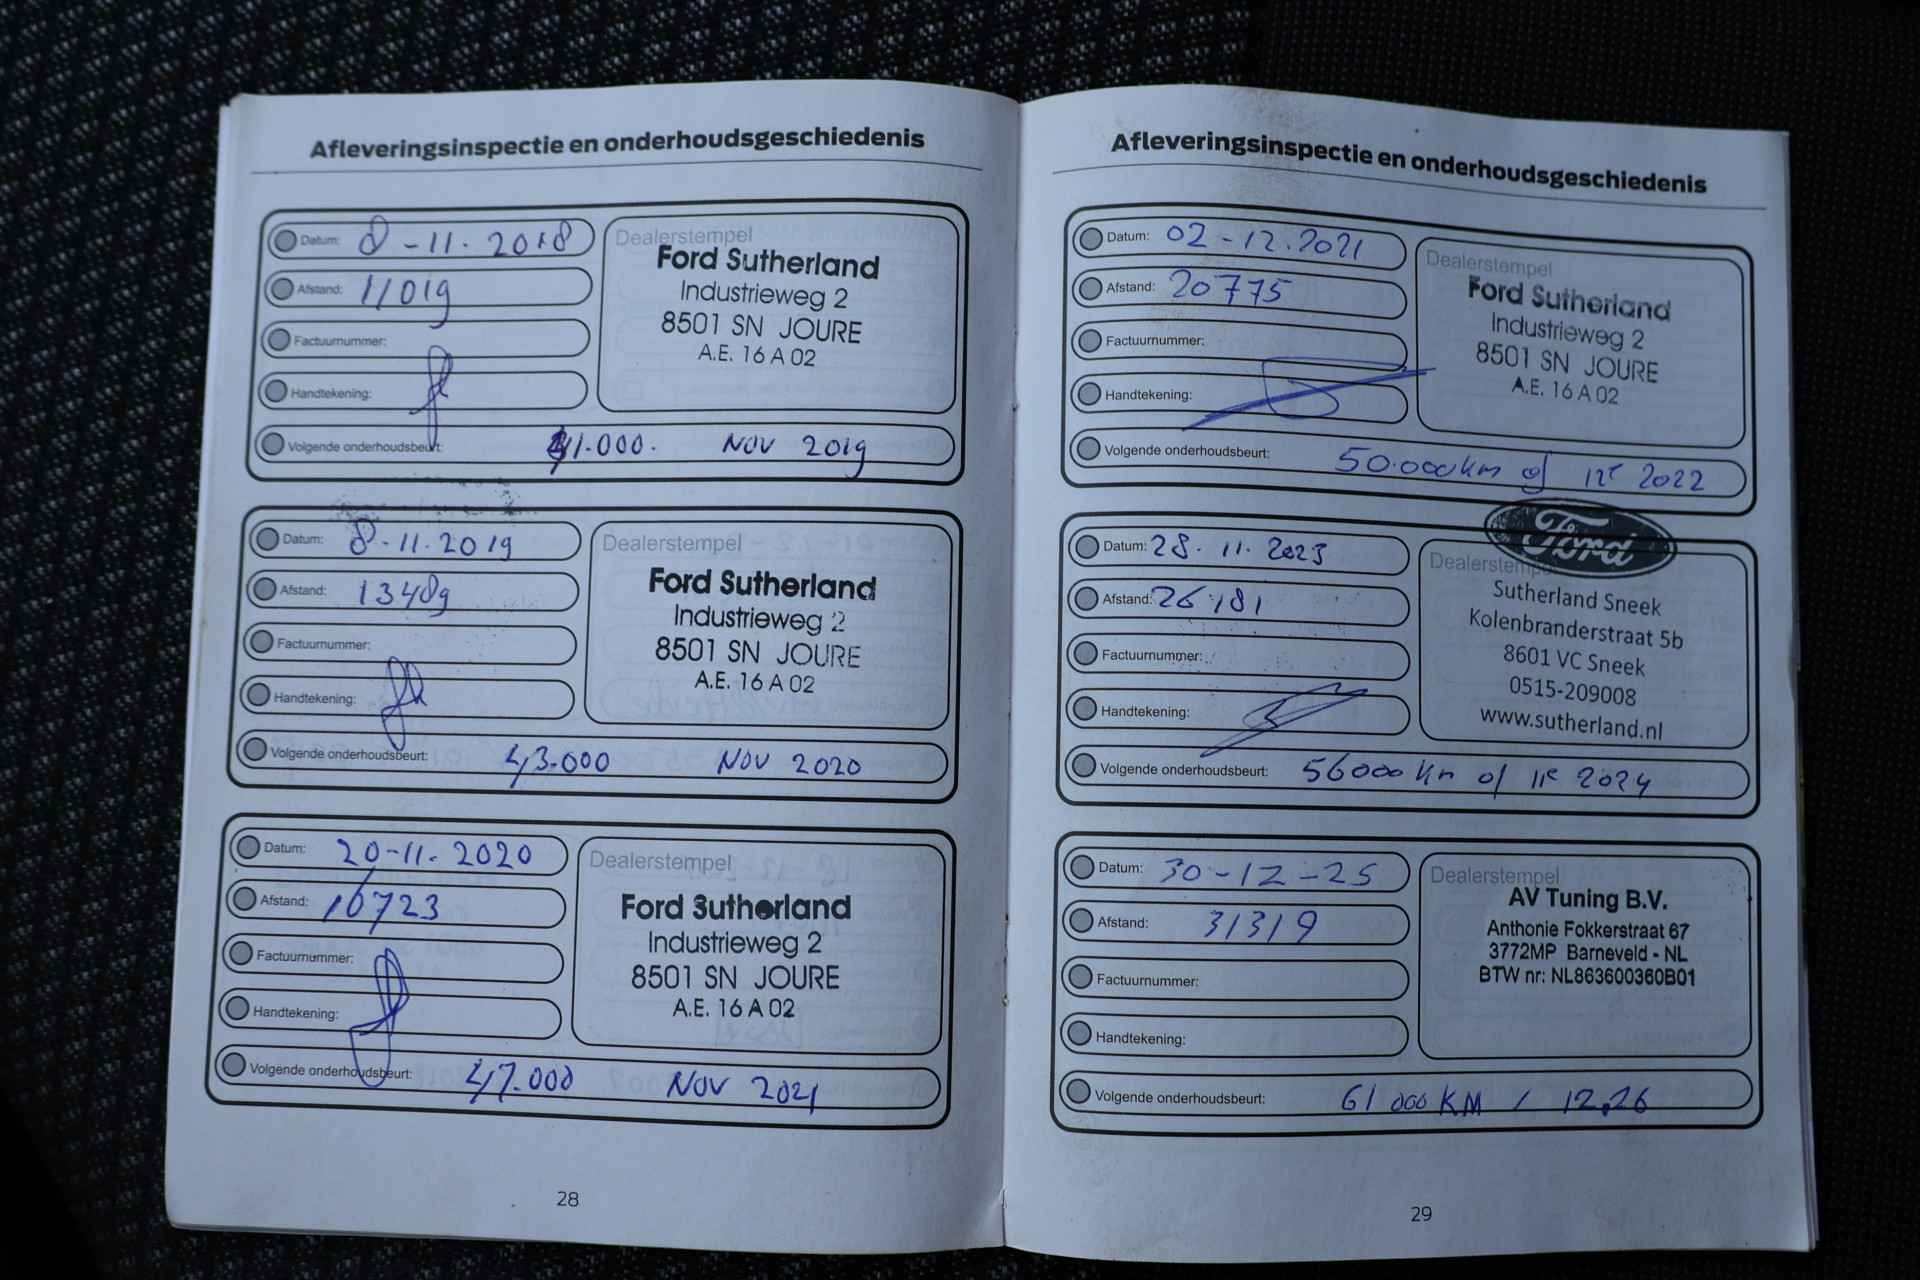 Afleveringsinspectie en onderhoudsgeschiedenis
Datum: 8-11-2018
Afstand: 11019
Factuurnummer:
Handtekening:
Volgende onderhoudsbeurt: 41.000. NOV 2019
Dealerstempel
Ford Sutherland
Industrieweg 2
8501 SN JOURE
A.E. 16 A 02
Datum: 8-11-2019
Afstand: 13489
Factuurnummer:
Handtekening:
Volgende onderhoudsbeurt: 43.000 NOV 2020
Dealerstempel
Ford Sutherland
Industrieweg 2
8501 SN JOURE
A.E. 16 A 02
Datum: 20-11-2020
Afstand: 16723
Factuurnummer:
Handtekening:
Volgende onderhoudsbeurt: 47.000 NOV 2021
Dealerstempel
Ford Sutherland
Industrieweg 2
8501 SN JOURE
A.E. 16 A 02
28
Afleveringsinspectie en onderhoudsgeschiedenis
Datum: 02-12.2021
Afstand: 20775
Factuurnummer:
Handtekening:
Volgende onderhoudsbeurt: 50.000km of 12e 2022
Dealerstempel
Ford Sutherland
Industrieweg 2
8501 SN JOURE
A.E. 16 A 02
Datum: 28.11.2023
Afstand: 26181
Factuurnummer:
Handtekening:
Volgende onderhoudsbeurt: 56000 Km of 11e 2024
Dealerstempel
Ford
Sutherland Sneek
Kolenbranderstraat 5b
8601 VC Sneek
0515-209008
www.sutherland.nl
Datum: 30-12-25
Afstand: 31319
Factuurnummer:
Handtekening:
Volgende onderhoudsbeurt: 61 000 KM / 12.26
Dealerstempel
AV Tuning B.V.
Anthonie Fokkerstraat 67
3772MP Barneveld - NL
BTW nr: NL863600360B01
29